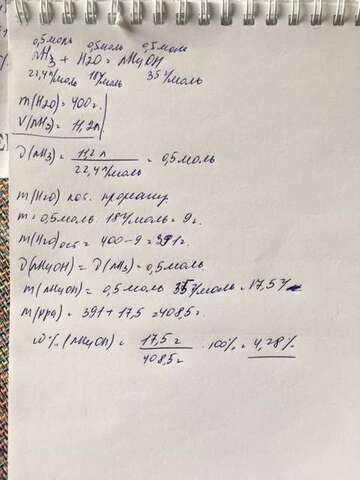 0,5 моль 0,5 моль 0,5 моль
NH3 + H2O = NH4OH
22,4 л/моль 18 г/моль 35 г/моль
m(H2O) = 400 г.
V(NH3) = 11,2 л
ν(NH3) = 11,2 л / 22,4 л/моль = 0,5 моль
m(H2O)
m = 0,5 моль 18 г/моль = 9 г.
m(H2O)ост = 400 - 9 = 391 г.
ν(NH4OH) = ν(NH3) = 0,5 моль.
m(NH4OH) = 0,5 моль 35 г/моль = 17,5 г
m(рра) = 391 + 17,5 = 408,5 г.
ω%(NH4OH) = 17,5 г / 408,5 г · 100% = 4,28%